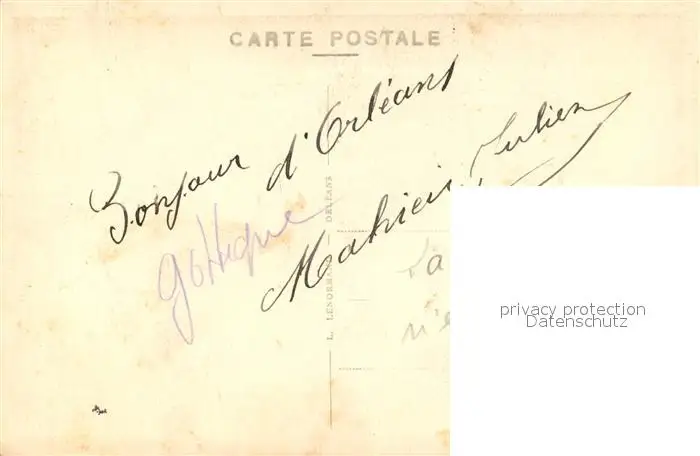 CARTE POSTALE
Bonjour d'Orléans
Mahieu Julien
gothique
L. LENORMAND — ORLÉANS
La
n'e
privacy protection
Datenschutz